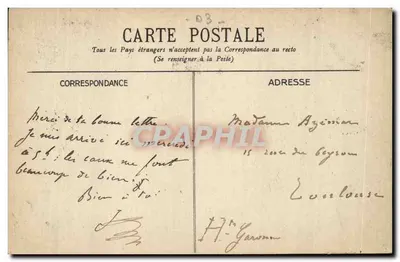 D3
CARTE POSTALE
Tous les Pays étrangers n'acceptent pas la Correspondance au recto
(Se renseigner à la Poste)
CORRESPONDANCE
ADRESSE
Merci de ta bonne lettre.
Je suis arrivé ici mercredi
à 5h : les eaux me font
beaucoup de bien.
Bien à toi
Madame Azémar
15 rue du
Toulouse
Hte Garonne
CRAPHIL